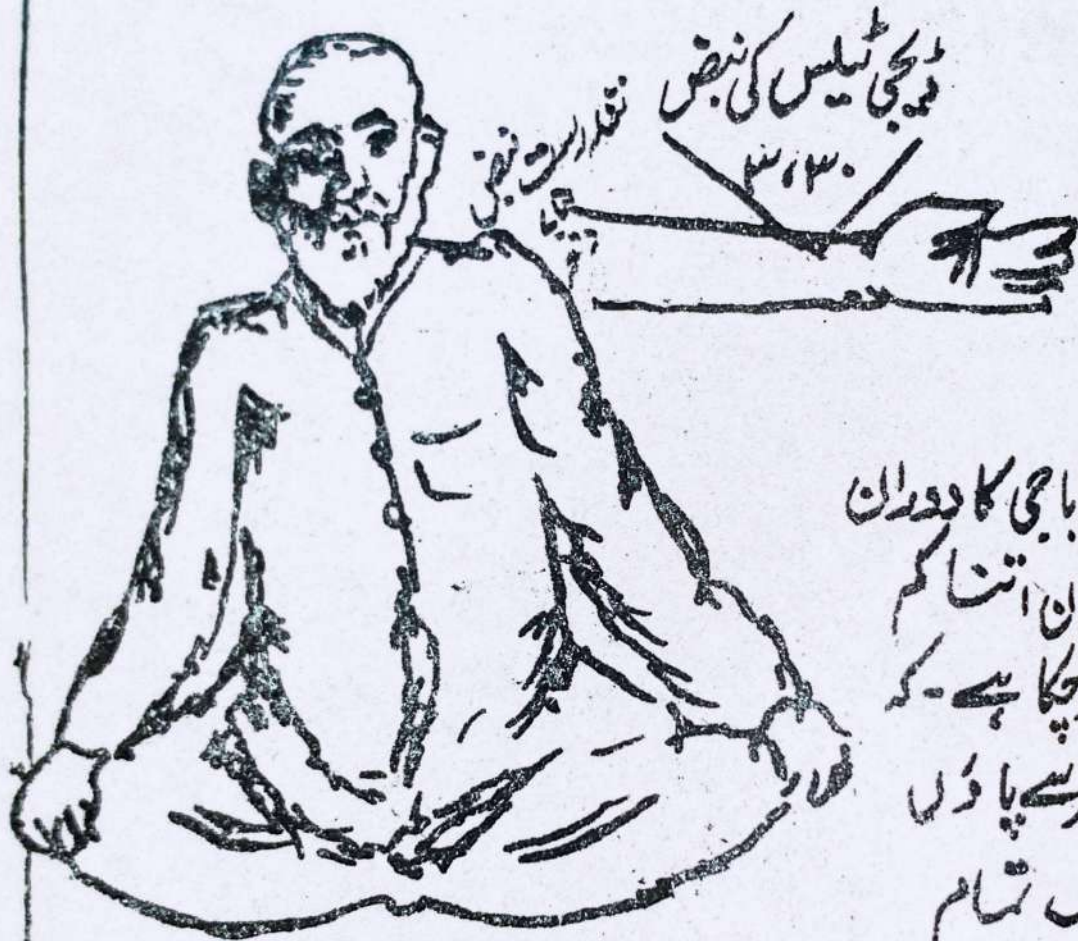 ڈیجی ٹیلس کی نبض
۳،۳۰
تندرست نبض
باجی کا دوران
ن اتنا کم
چکا ہے۔ کہ
سے پاؤں
تمام